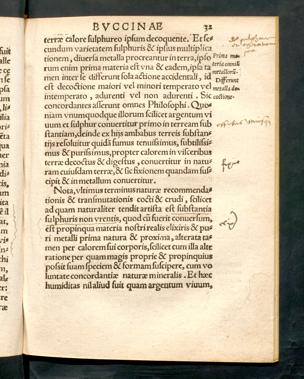 BVCCINAE
32
terræ calore sulphureo ipsum decoquente. Et se-
cundum varietatem sulphuris & ipsius multiplica
tionem, diuersa metalla procreantur in terra, ipso
rum enim prima materia est vna & eadem, ipsa ta
men inter se differunt sola actione accidentali, id
est decoctione maiori vel minori temperato vel
intemperato, adurenti vel non adurenti. Sic
concordantes asserunt omnes Philosophi. Quo-
niam vnumquodque illorum fuscitet argentum vi
uum et sulphur conuertitur primo in terream sub
stantiam, deinde ex hijs ambabus terreis substan-
tijs resoluitur quidã fumus tenuissimus, subtilissi-
mus & purissimus, propter calorem in visceribus
terræ decoctus & digestus, conuertitur in natu-
ram cuiusdam terræ, & sic fixionem quandam sus
cipit & in metallum conuertitur.
Nota, vltimus terminus naturæ recommenda-
tionis & transmutationis cocti & crudi, scilicet
ad quam naturaliter tendit artista est substantia
sulphuris non vrentis, quod cũ fuerit conuersum,
est propinqua materia nostri realis elixiris & pu-
ri metalli prima natura & proxima, alterata ta-
men per calorem sui corporis, scilicet cum illa alte
ratione per quam magis proprie & propinquius
possit suam speciem & formam suscipere, cum vo
luntate concordantiæ naturæ mineralis. Et hæc
humiditas nil aliud fuit quam argentum viuum,
Prima ma
teria omniũ
metallorũ.
Differunt
metalla de
coctione.